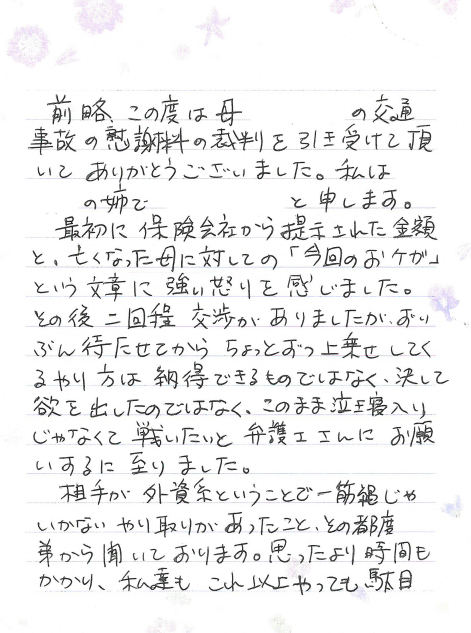 前略、この度は母　　　　の交通
事故の慰謝料の裁判を引き受けて頂
いてありがとうございました。私は
の姉で　　　　　と申します。
最初に保険会社から提示された金額
と、亡くなった母に対しての「今回のおケガ」
という文章に強い怒りを感じました。
その後二回程交渉がありましたが、ずい
ぶん待たせてからちょっとずつ上乗せしてく
るやり方は納得できるものではなく、決して
欲を出したのではなく、このまま泣き寝入り
じゃなくて戦いたいと弁護士さんにお願
いするに至りました。
相手が外資系ということで一筋縄じゃ
いかないやり取りがあったこと、その都度
弟から聞いております。思ったより時間も
かかり、私達もこれ以上やっても駄目